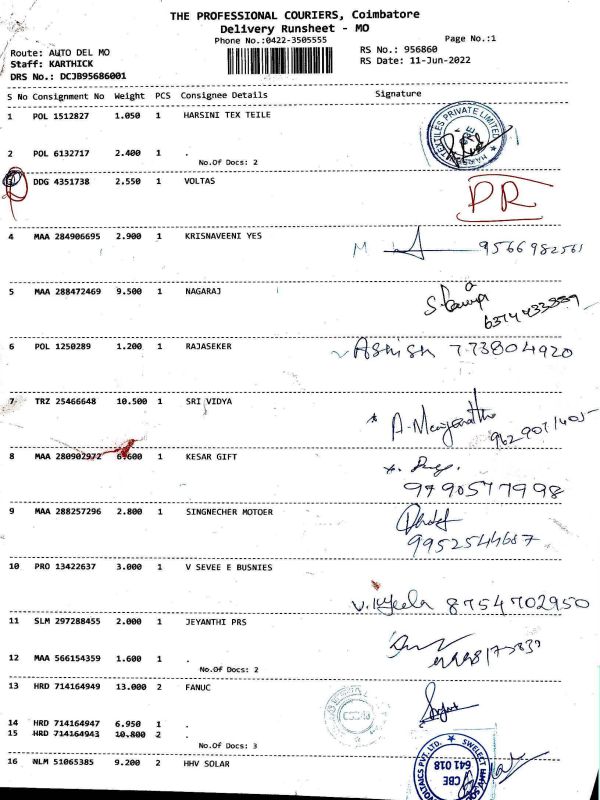 THE PROFESSIONAL COURIERS, Coimbatore
Delivery Runsheet - MO
Phone No.:0422-3505555
Page No.:1
Route: AUTO DEL MO
RS No.: 956860
Staff: KARTHICK
RS Date: 11-Jun-2022
DRS No.: DCJB95686001
S No Consignment No Weight PCS Consignee Details Signature
1 POL 1512827 1.050 1 HARSINI TEX TEILE
2 POL 6132717 2.400 1 .
No.Of Docs: 2
3 DDG 4351738 2.550 1 VOLTAS
DR
4 MAA 284906695 2.900 1 KRISNAVEENI YES
M 9566982561
5 MAA 288472469 9.500 1 NAGARAJ
6374433339
6 POL 1250289 1.200 1 RAJASEKER
Ashish 773804920
7 TRZ 25466648 10.500 1 SRI VIDYA
8 MAA 280902972 6.600 1 KESAR GIFT
9790577998
9 MAA 288257296 2.800 1 SINGNECHER MOTOER
9952544687
10 PRO 13422637 3.000 1 V SEVEE E BUSNIES
8754702950
11 SLM 297288455 2.000 1 JEYANTHI PRS
12 MAA 566154359 1.600 1 .
No.Of Docs: 2
13 HRD 714164949 13.000 2 FANUC
14 HRD 714164947 6.950 1 .
15 HRD 714164943 10.800 2
No.Of Docs: 3
16 NLM 51065385 9.200 2 HHV SOLAR
CBE
641 018